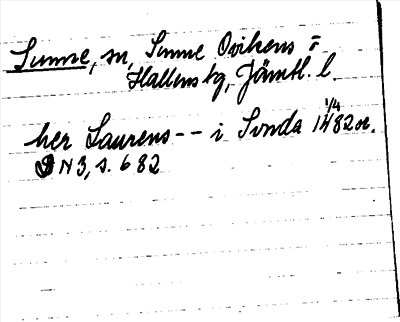 Sunne, sn, Sunne Ovikens o
Hallens tg, Jämtl. l.
her Laurens -- i Sunda 1/4 1482 or.
DN 3, s. 682